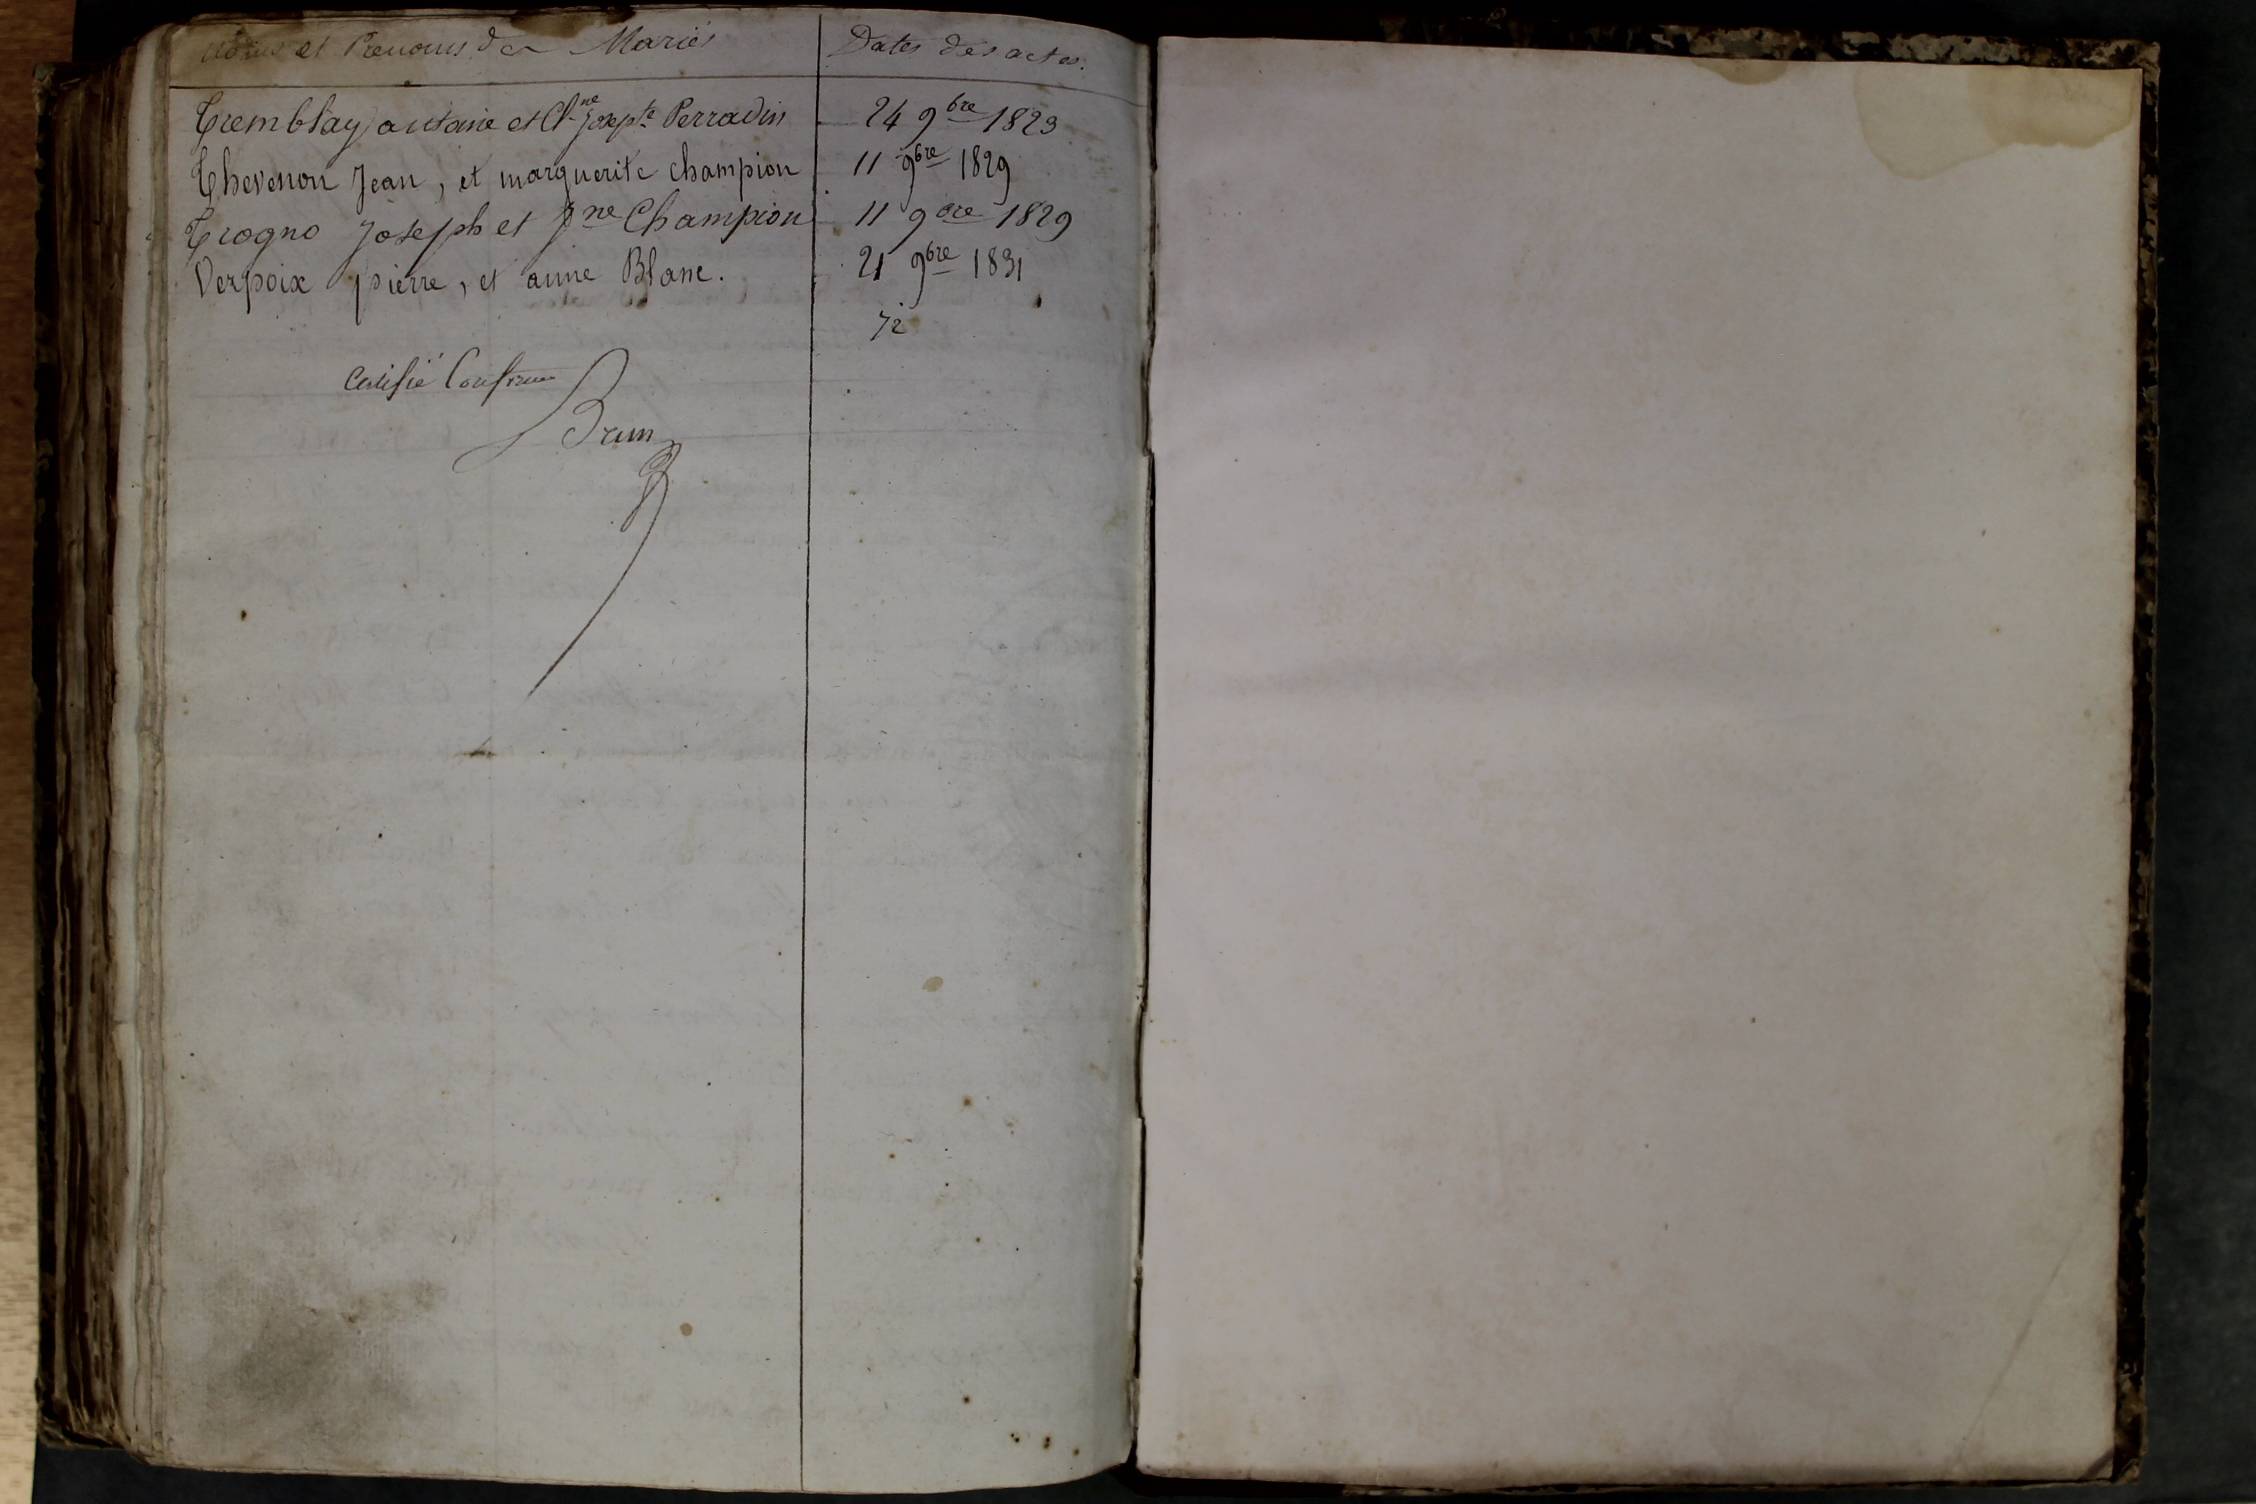 Noms et Prenoms des Mariés Dates des actes.
Tremblay antoine et Cl.ne Josepte Perradin 24 9bre 1823
Thevenon Jean, et marguerite champion 11 9bre 1829
Trogno Joseph et Jne Champion 11 9bre 1829
Verpoix pierre, et anne Blanc. 21 9bre 1831
72
Certifié Conforme
Brun